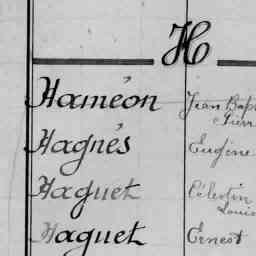 H
Haméon Jean Bap
Pierr
Hagnès Eugène
Haguet Célestin
Louis
Haguet Ernest